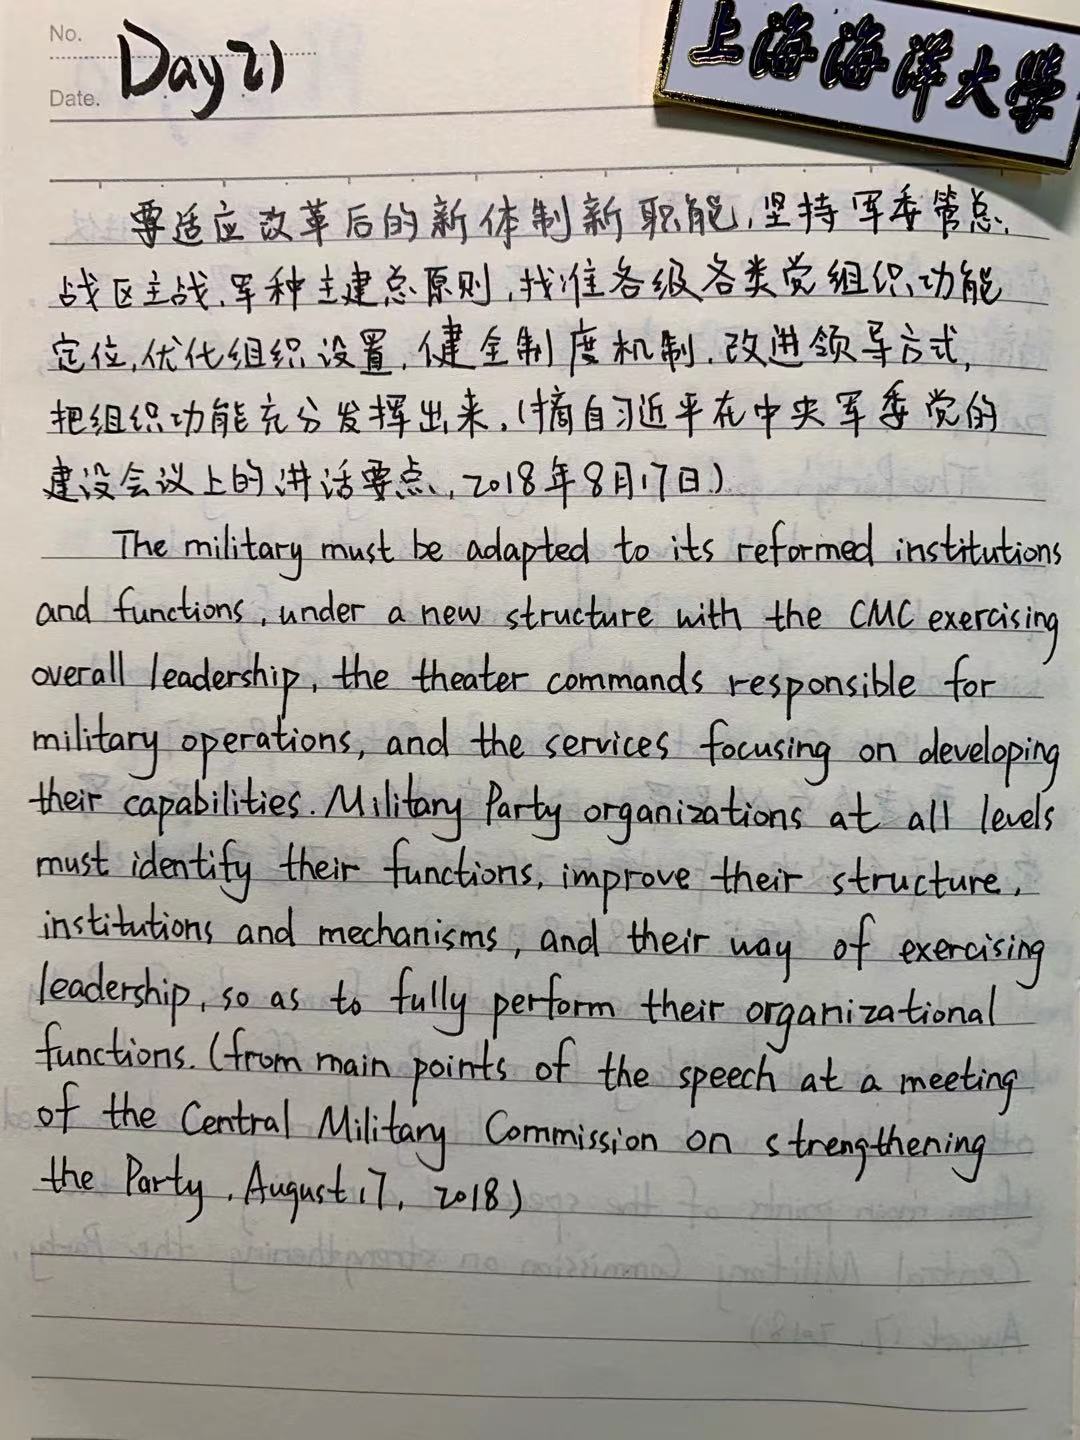 No.
Day 21
Date.
上海海洋大學
要适应改革后的新体制新职能,坚持军委管总、
战区主战、军种主建总原则,找准各级各类党组织功能
定位,优化组织设置,健全制度机制,改进领导方式,
把组织功能充分发挥出来。(摘自习近平在中央军委党的
建设会议上的讲话要点,2018年8月17日)
The military must be adapted to its reformed institutions
and functions, under a new structure with the CMC exercising
overall leadership, the theater commands responsible for
military operations, and the services focusing on developing
their capabilities. Military Party organizations at all levels
must identify their functions, improve their structure,
institutions and mechanisms, and their way of exercising
leadership, so as to fully perform their organizational
functions. (from main points of the speech at a meeting
of the Central Military Commission on strengthening
the Party, August 17, 2018)